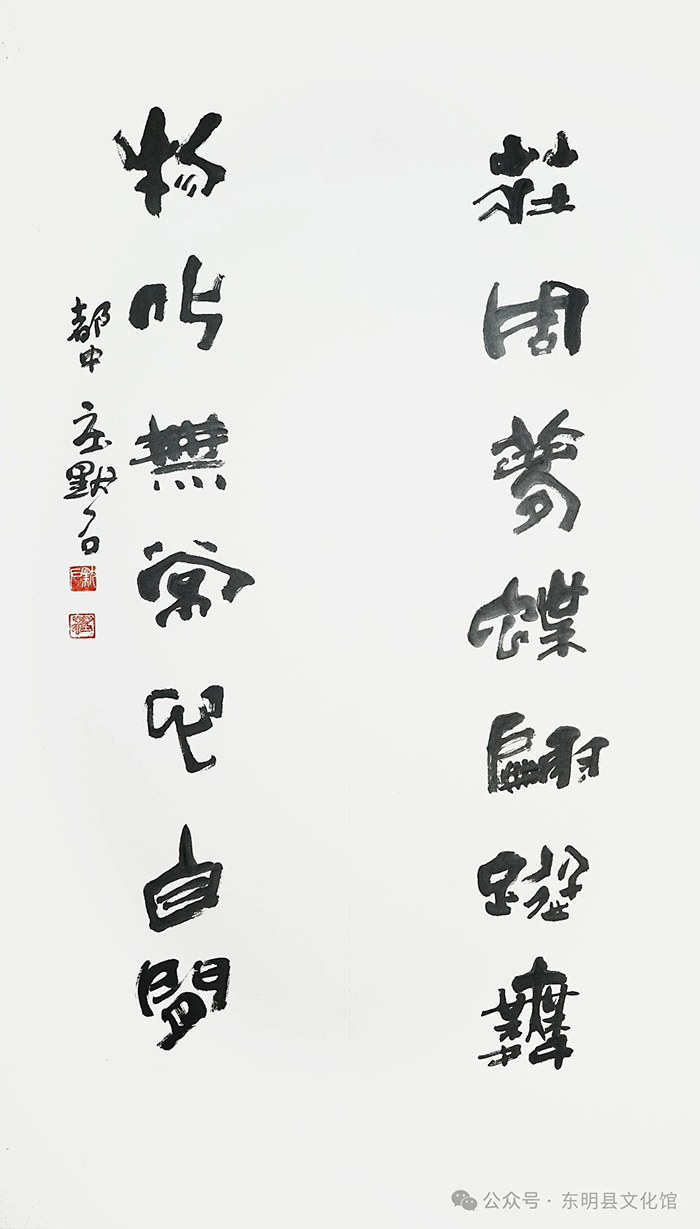 莊周夢蝶翩蹤舞
物以無常心自閒
都中 庄默石
公众号·东明县文化馆